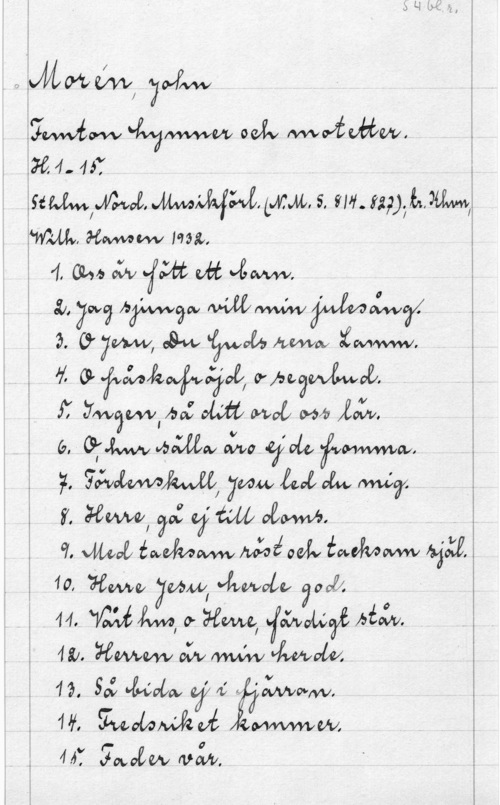 54 bl. r.
Morén, John
Femton hymner och motetter.
H. 1-15.
Sthlm, Nord. Musikförl. (N.M.S. 814-827); tr. Khvn,
Wilh. Hansen 1932.
1. Oss är fött ett barn.
2. Jag sjunga vill min julesång.
3. O Jesu, Du Guds rena Lamm.
4. O påskafröjd, o segerbud.
5. Ingen, så ditt ord oss lär.
6. O, hur sälla äro ej de fromma.
7. Fördenskull, Jesu led du mig.
8. Herre, gå ej till doms.
9. Med tacksam röst och tacksam själ.
10. Herre Jesu, herde god.
11. Vårt hus, o Herre, färdigt står.
12. Herren är min herde.
13. Så bida ej i fjärran.
14. Fredsriket kommer.
15. Fader vår.